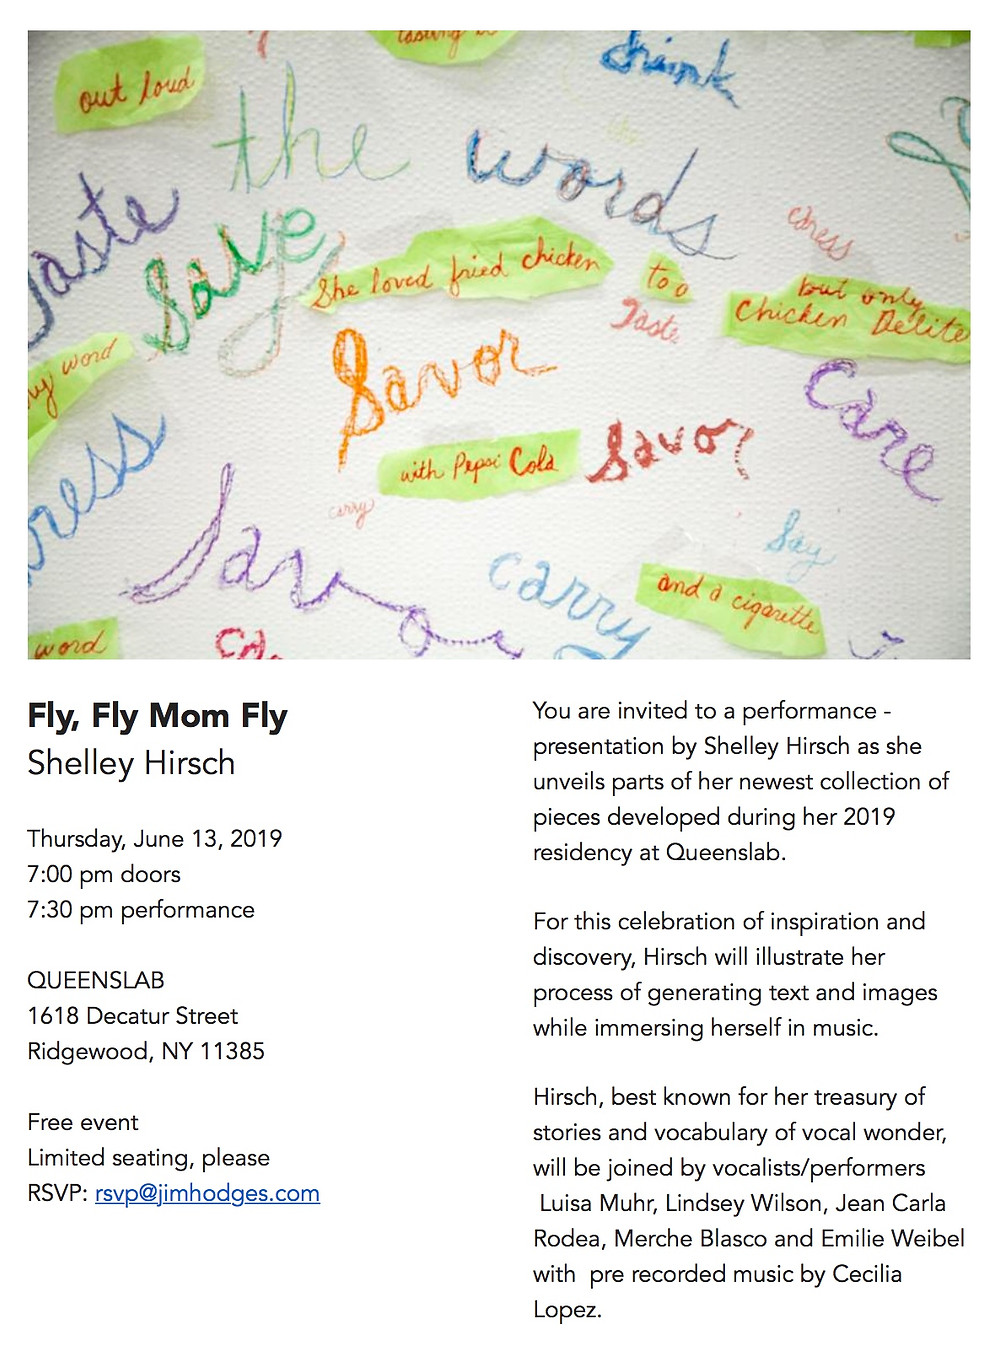 out loud
tasting
drink
the
words
taste
save
caress
She loved fried chicken
too
Taste
but only
Chicken Delite
my word
Savor
Care
ress
with Pepsi Cola
Savor
carry
Savor
Say
carry
and a cigarette
word
Fly, Fly Mom Fly
Shelley Hirsch
Thursday, June 13, 2019
7:00 pm doors
7:30 pm performance
QUEENSLAB
1618 Decatur Street
Ridgewood, NY 11385
Free event
Limited seating, please
RSVP: rsvp@jimhodges.com
You are invited to a performance -
presentation by Shelley Hirsch as she
unveils parts of her newest collection of
pieces developed during her 2019
residency at Queenslab.
For this celebration of inspiration and
discovery, Hirsch will illustrate her
process of generating text and images
while immersing herself in music.
Hirsch, best known for her treasury of
stories and vocabulary of vocal wonder,
will be joined by vocalists/performers
Luisa Muhr, Lindsey Wilson, Jean Carla
Rodea, Merche Blasco and Emilie Weibel
with pre recorded music by Cecilia
Lopez.